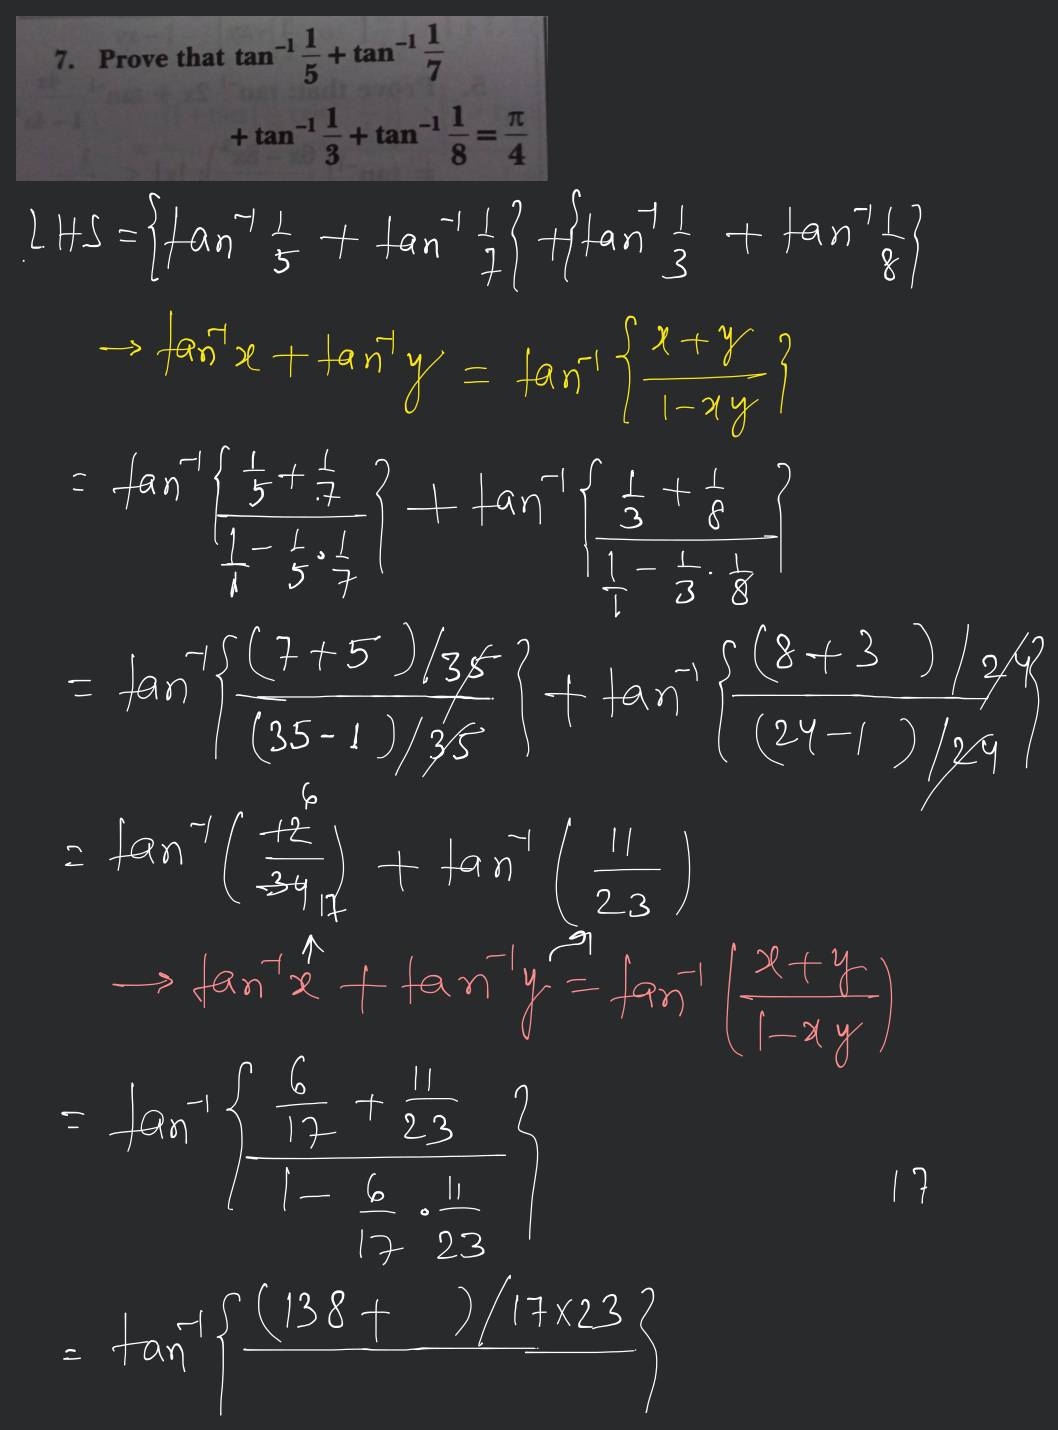 7. Prove that tan⁻¹ 1/5 + tan⁻¹ 1/7
+ tan⁻¹ 1/3 + tan⁻¹ 1/8 = π/4
LHS = {tan⁻¹ 1/5 + tan⁻¹ 1/7} + {tan⁻¹ 1/3 + tan⁻¹ 1/8}
→ tan⁻¹x + tan⁻¹y = tan⁻¹ {(x+y)/(1-xy)}
= tan⁻¹ {(1/5 + 1/7)/(1/1 - 1/5 · 1/7)} + tan⁻¹ {(1/3 + 1/8)/(1/1 - 1/3 · 1/8)}
= tan⁻¹ {((7+5)/35)/((35-1)/35)} + tan⁻¹ {((8+3)/24)/((24-1)/24)}
= tan⁻¹ (12/34) 6 17 + tan⁻¹ (11/23)
→ tan⁻¹x + tan⁻¹y = tan⁻¹ ((x+y)/(1-xy))
= tan⁻¹ {(6/17 + 11/23)/(1 - 6/17 · 11/23)}
17
= tan⁻¹ {(138+ )/17×23}